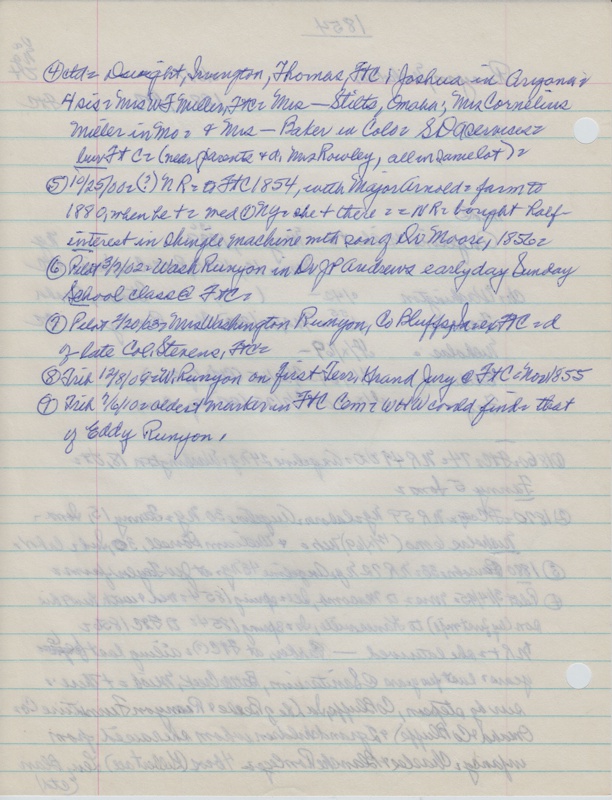 ④ ctd = Dwight, Irvington, Thomas, FtC; Joshua in Arizona =
4 sis = Mrs WF Miller, FtC = Mrs — Stilts, Omaha; Mrs Cornelius
Miller in Mo = & Mrs — Baker in Colo = SDA services =
bur Ft C = (near parents & d. Mrs Rowley, all in same lot) =
⑤ 10/25/00 = (?) NR = FtC 1854, with Major Arnold = farm to
1880, when he + = med NY = she + there = = NR = bought half-
interest in shingle machine with son of Dr Moore, 1856 =
⑥ Pilot 3/ /02 = Wash Runyon in Dr JP Andrews early day Sunday
School class @ FtC =
⑦ Pilot /20/03 = Mrs Washington Runyon, Co Bluffs, in FtC = d
of late Col. Stevens, FtC =
⑧ Trib 12/8/09 = W. Runyon on first Terr. Grand Jury @ FtC = Nov 1855
⑨ Trib /6/10 = oldest marker in FtC Cem = WHW could find = that
of Eddy Runyon,